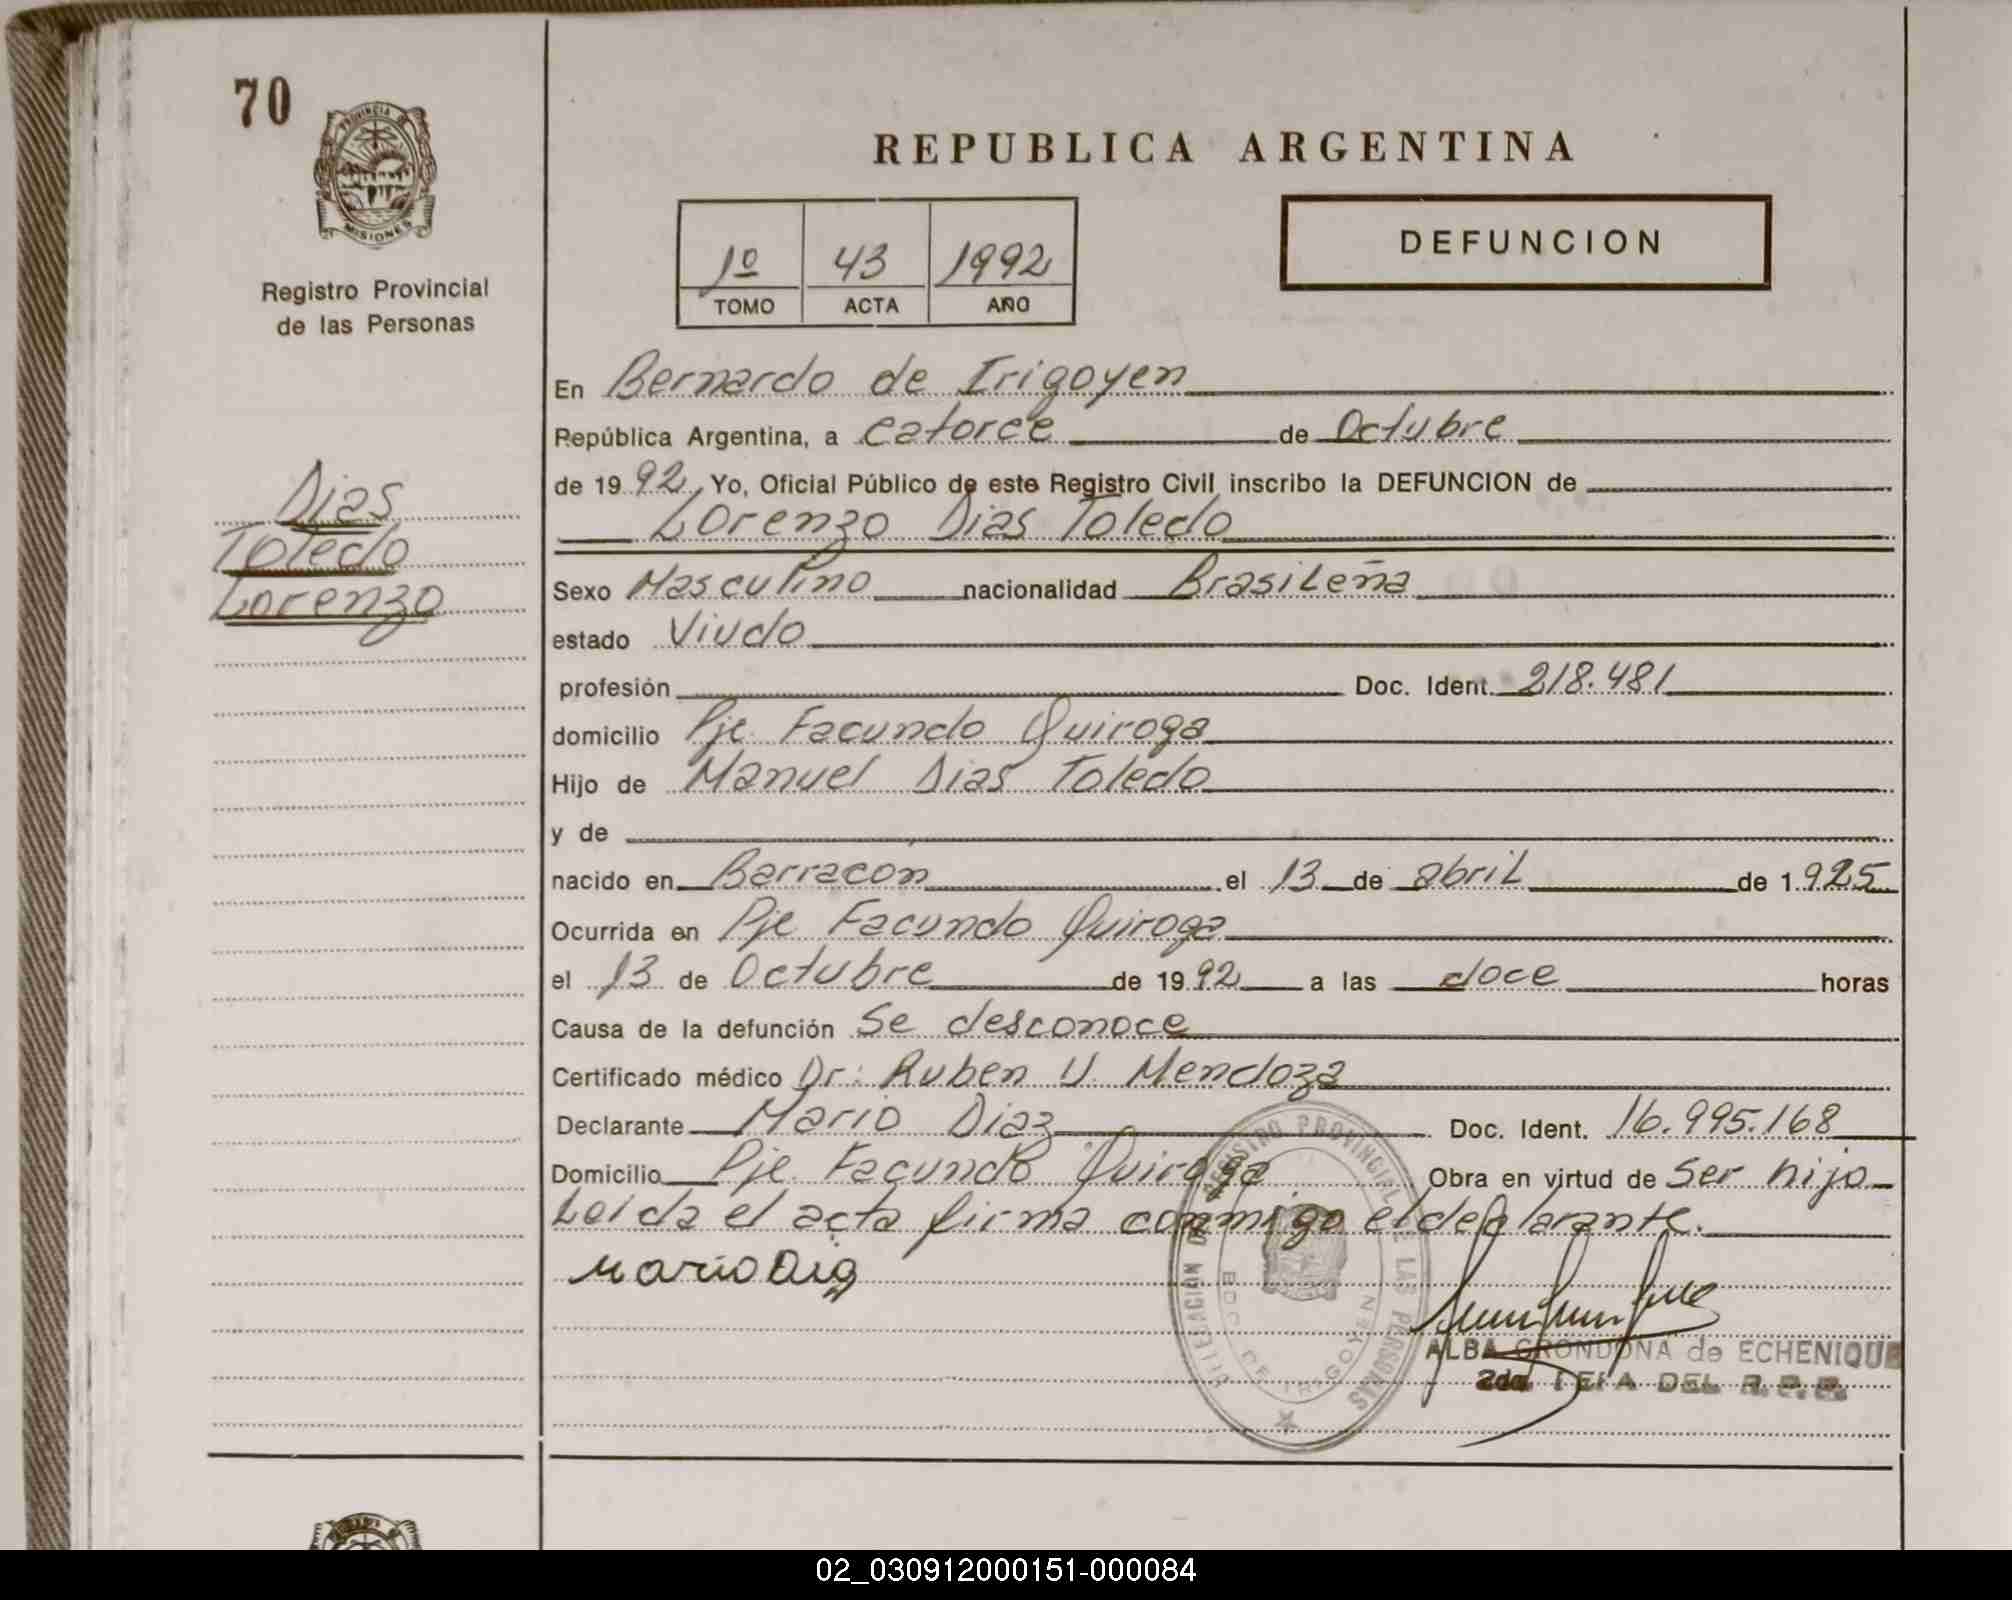 70
PROVINCIA DE
MISIONES
Registro Provincial
de las Personas
Dias
Toledo
Lorenzo
REPUBLICA ARGENTINA
1º 43 1992
TOMO ACTA AÑO
DEFUNCION
En Bernardo de Irigoyen
República Argentina, a catorce de Octubre
de 1992 Yo, Oficial Público de este Registro Civil inscribo la DEFUNCION de
Lorenzo Dias Toledo
Sexo Masculino nacionalidad Brasileña
estado Viudo
profesión Doc. Ident. 218.481
domicilio Pje Facundo Quiroga
Hijo de Manuel Dias Toledo
y de
nacido en Barracon el 13 de abril de 1.925
Ocurrida en Pje Facundo Quiroga
el 13 de Octubre de 1992 a las doce horas
Causa de la defunción Se desconoce
Certificado médico Dr: Ruben U. Mendoza
Declarante Mario Diaz Doc. Ident. 16.995.168
Domicilio Pje Facundo Quiroga Obra en virtud de Ser hijo
Leida el acta firma conmigo el declarante.
Mario Dia
REGISTRO PROVINCIAL DE LAS PERSONAS
BDO. DE IRIGOYEN
ALBA GRONDONA de ECHENIQUE
2da JEFA DEL R.P.P.
02_030912000151-000084